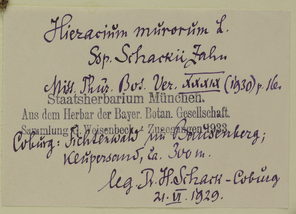 Hieracium murorum L.
Ssp. Schackii Zahn
Mitt. Thür. Bot. Ver. XXXIX (1930) p. 16.
Staatsherbarium München.
Aus dem Herbar der Bayer. Botan. Gesellschaft.
Sammlung G. Weisenbeck. Zugegangen 1938
Coburg: Fichtenwald im;
Keupersand, ca. 300 m.
leg. R. H. Schack - Coburg
21. VI. 1929.